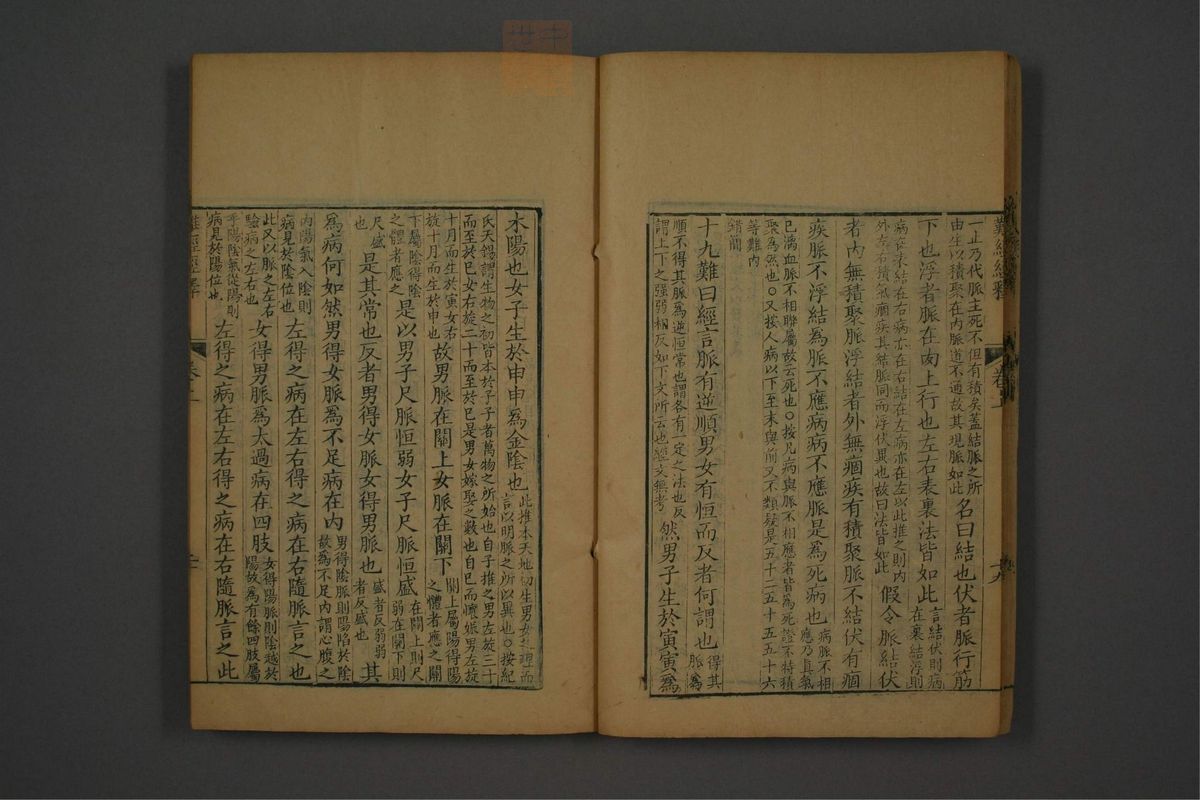 難經經釋
卷上
十九
一止乃代脈主死不但有積矣蓋結脈之所
由生以積聚在內脈道不通故其現脈如此
名曰結也伏者脈行筋
下也浮者脈在肉上行也左右表裏法皆如此
言結伏則病
在裏結浮則
病在表結在右病亦在右結在左病亦在左以此推之則內
外左右積氣痼疾其結脈同而浮伏異也故曰法皆如此
假令脈結伏
者內無積聚脈浮結者外無痼疾有積聚脈不結伏有痼
疾脈不浮結爲脈不應病病不應脈是爲死病也
病脈不相
應乃真氣
已漓血脈不相聯屬故云死也○按凡病與脈不相應者皆爲死證不特積
聚爲然也○又按人病以下至末與前又不類疑是五十二五十五五十六
等難內
錯簡
十九難曰經言脈有逆順男女有恒而反者何謂也
得其
脈爲
順不得其脈爲逆恒常也謂各有一定之法也反
謂上下之強弱相反如下文所云也經文無考
然男子生於寅寅爲
木陽也女子生於申申爲金陰也
此推本天地初生男女之理而
言以明脈之所以異也○按紀
氏天錫謂生物之初皆本於子子者萬物之所始也自子推之男左旋三十
而至於巳女右旋二十而至於巳是男女嫁娶之數也自巳而懷娠男左旋
十月而生於寅女右
旋十月而生於申也
故男脈在關上女脈在關下
關上屬陽得陽
之體者應之關
下屬陰得陰
之體者應之
是以男子尺脈恒弱女子尺脈恒盛
在關上則尺
弱在關下則
尺盛
也
是其常也反者男得女脈女得男脈也
盛者反弱弱
者反盛也
其
爲病何如然男得女脈爲不足病在內
男得陰脈則陽陷於陰
故爲不足內謂心腹之
內陽氣入陰則
病見於陰位也
左得之病在左右得之病在右隨脈言之也
此又以脈之左右
驗病之左右也
女得男脈爲太過病在四肢
女得陽脈則陰越於
陽故爲有餘四肢屬
乎陽陰氣從陽則
病見於陽位也
左得之病在左右得之病在右隨脈言之此